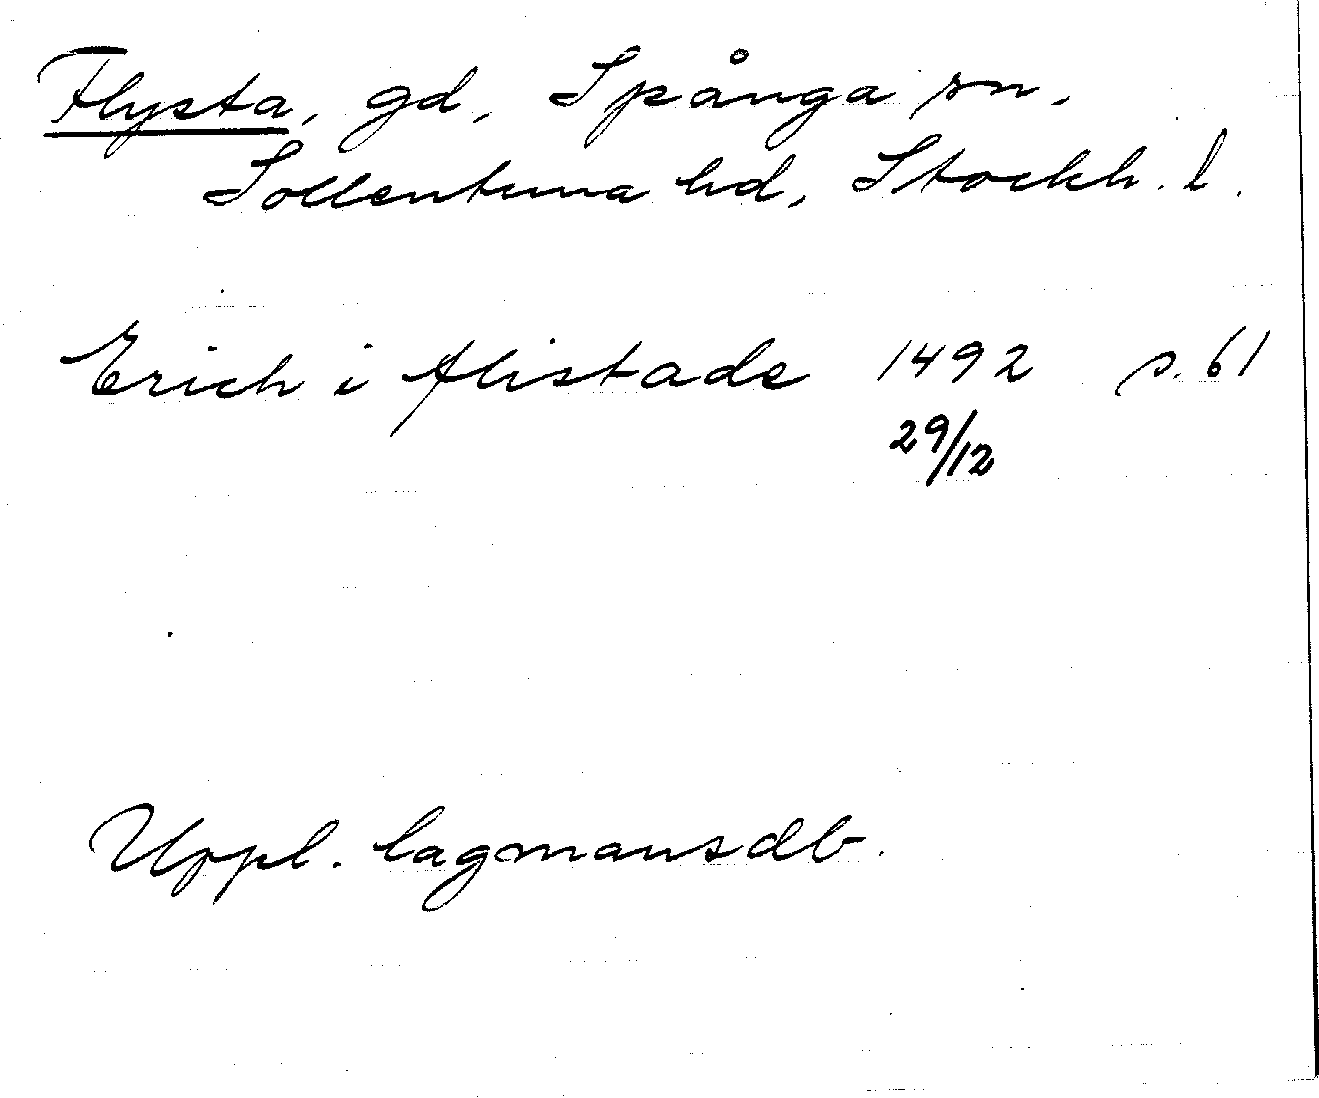 Flysta, gd, Spånga sn.
Sollentuna hd, Stockh. l.
Erich i flistade 1492 s. 61
29/12
Uppl. lagmansdb.